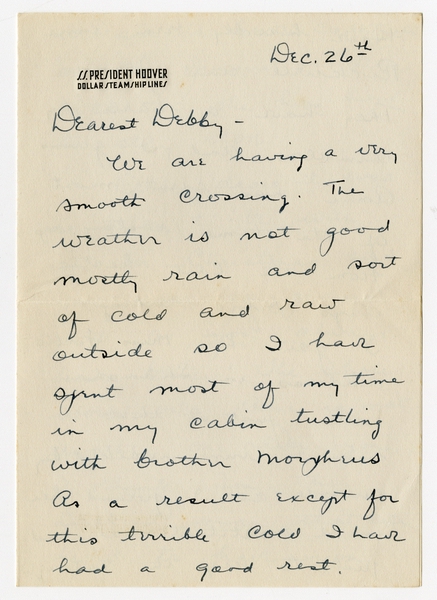 Dec. 26th
S.S. PRESIDENT HOOVER
DOLLAR STEAMSHIP LINES
Dearest Debby -
We are having a very
smooth crossing. The
weather is not good
mostly rain and sort
of cold and raw
outside so I have
spent most of my time
in my cabin tustling
with brother Morpheus
As a result except for
this terrible cold I have
had a good rest.